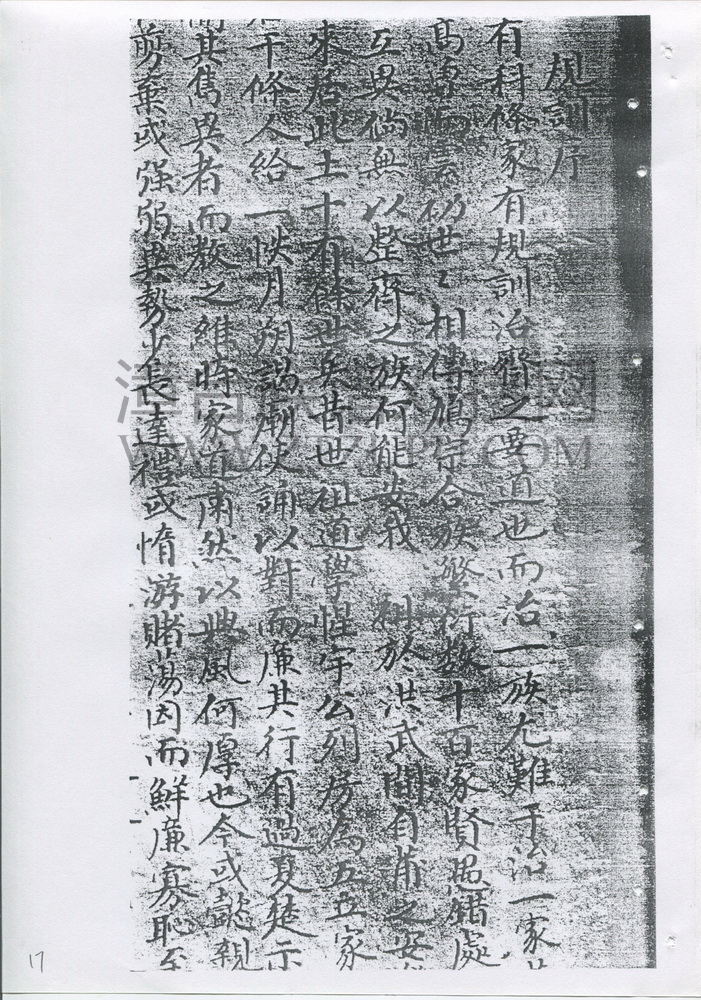 規訓序
有科條家有規訓治齊之要道也而治一族尤難于治一家
仍世々相傳鳩宗合族繁衍数十百家賢愚錯處
互異倘無以整齊之族何能安我 於洪武間自莆之安
來居此土十有餘世矣昔世祖道學惺宇公列房為五五家
干條人給一帙月朔謁廟使誦以對而廉其行有過夏楚示
其雋異者而教之維時家道肅然以興風何厚也今或懿親
剪棄或强弱異勢少長違禮或惰游賭蕩因而鮮廉寡恥至
17